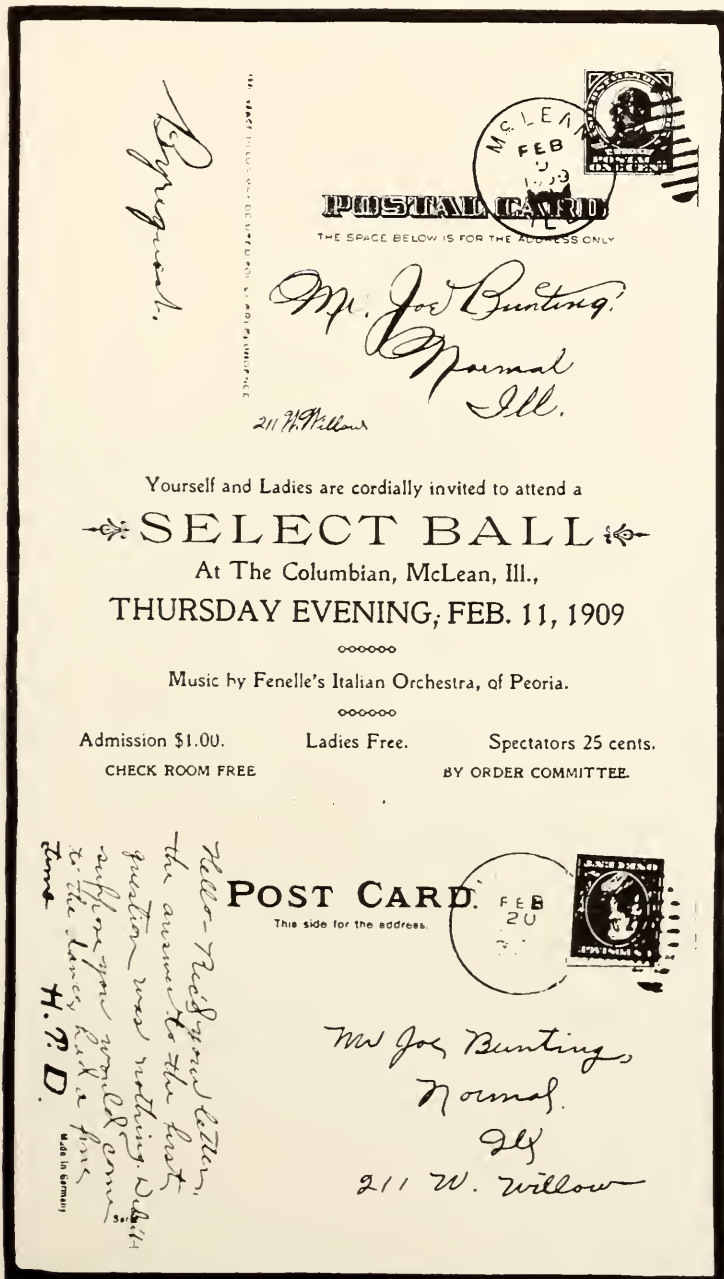 By request.
McLEAN
FEB
ILL
POSTAL CARD
THE SPACE BELOW IS FOR THE ADDRESS ONLY
Mr. Joe Bunting.
Normal
Ill.
211 W. Willow
Yourself and Ladies are cordially invited to attend a
SELECT BALL
At The Columbian, McLean, Ill.,
THURSDAY EVENING, FEB. 11, 1909
Music by Fenelle's Italian Orchestra, of Peoria.
Admission $1.00. Ladies Free. Spectators 25 cents.
CHECK ROOM FREE BY ORDER COMMITTEE.
Hello - Rec'd your letter,
the answer to the first
question was nothing.
suppose you would come
to the dance, had a fine
time H.P.D.
Made in Germany
POST CARD.
This side for the address.
FEB
20
Mr Joe Bunting,
Normal.
Ill
211 W. Willow